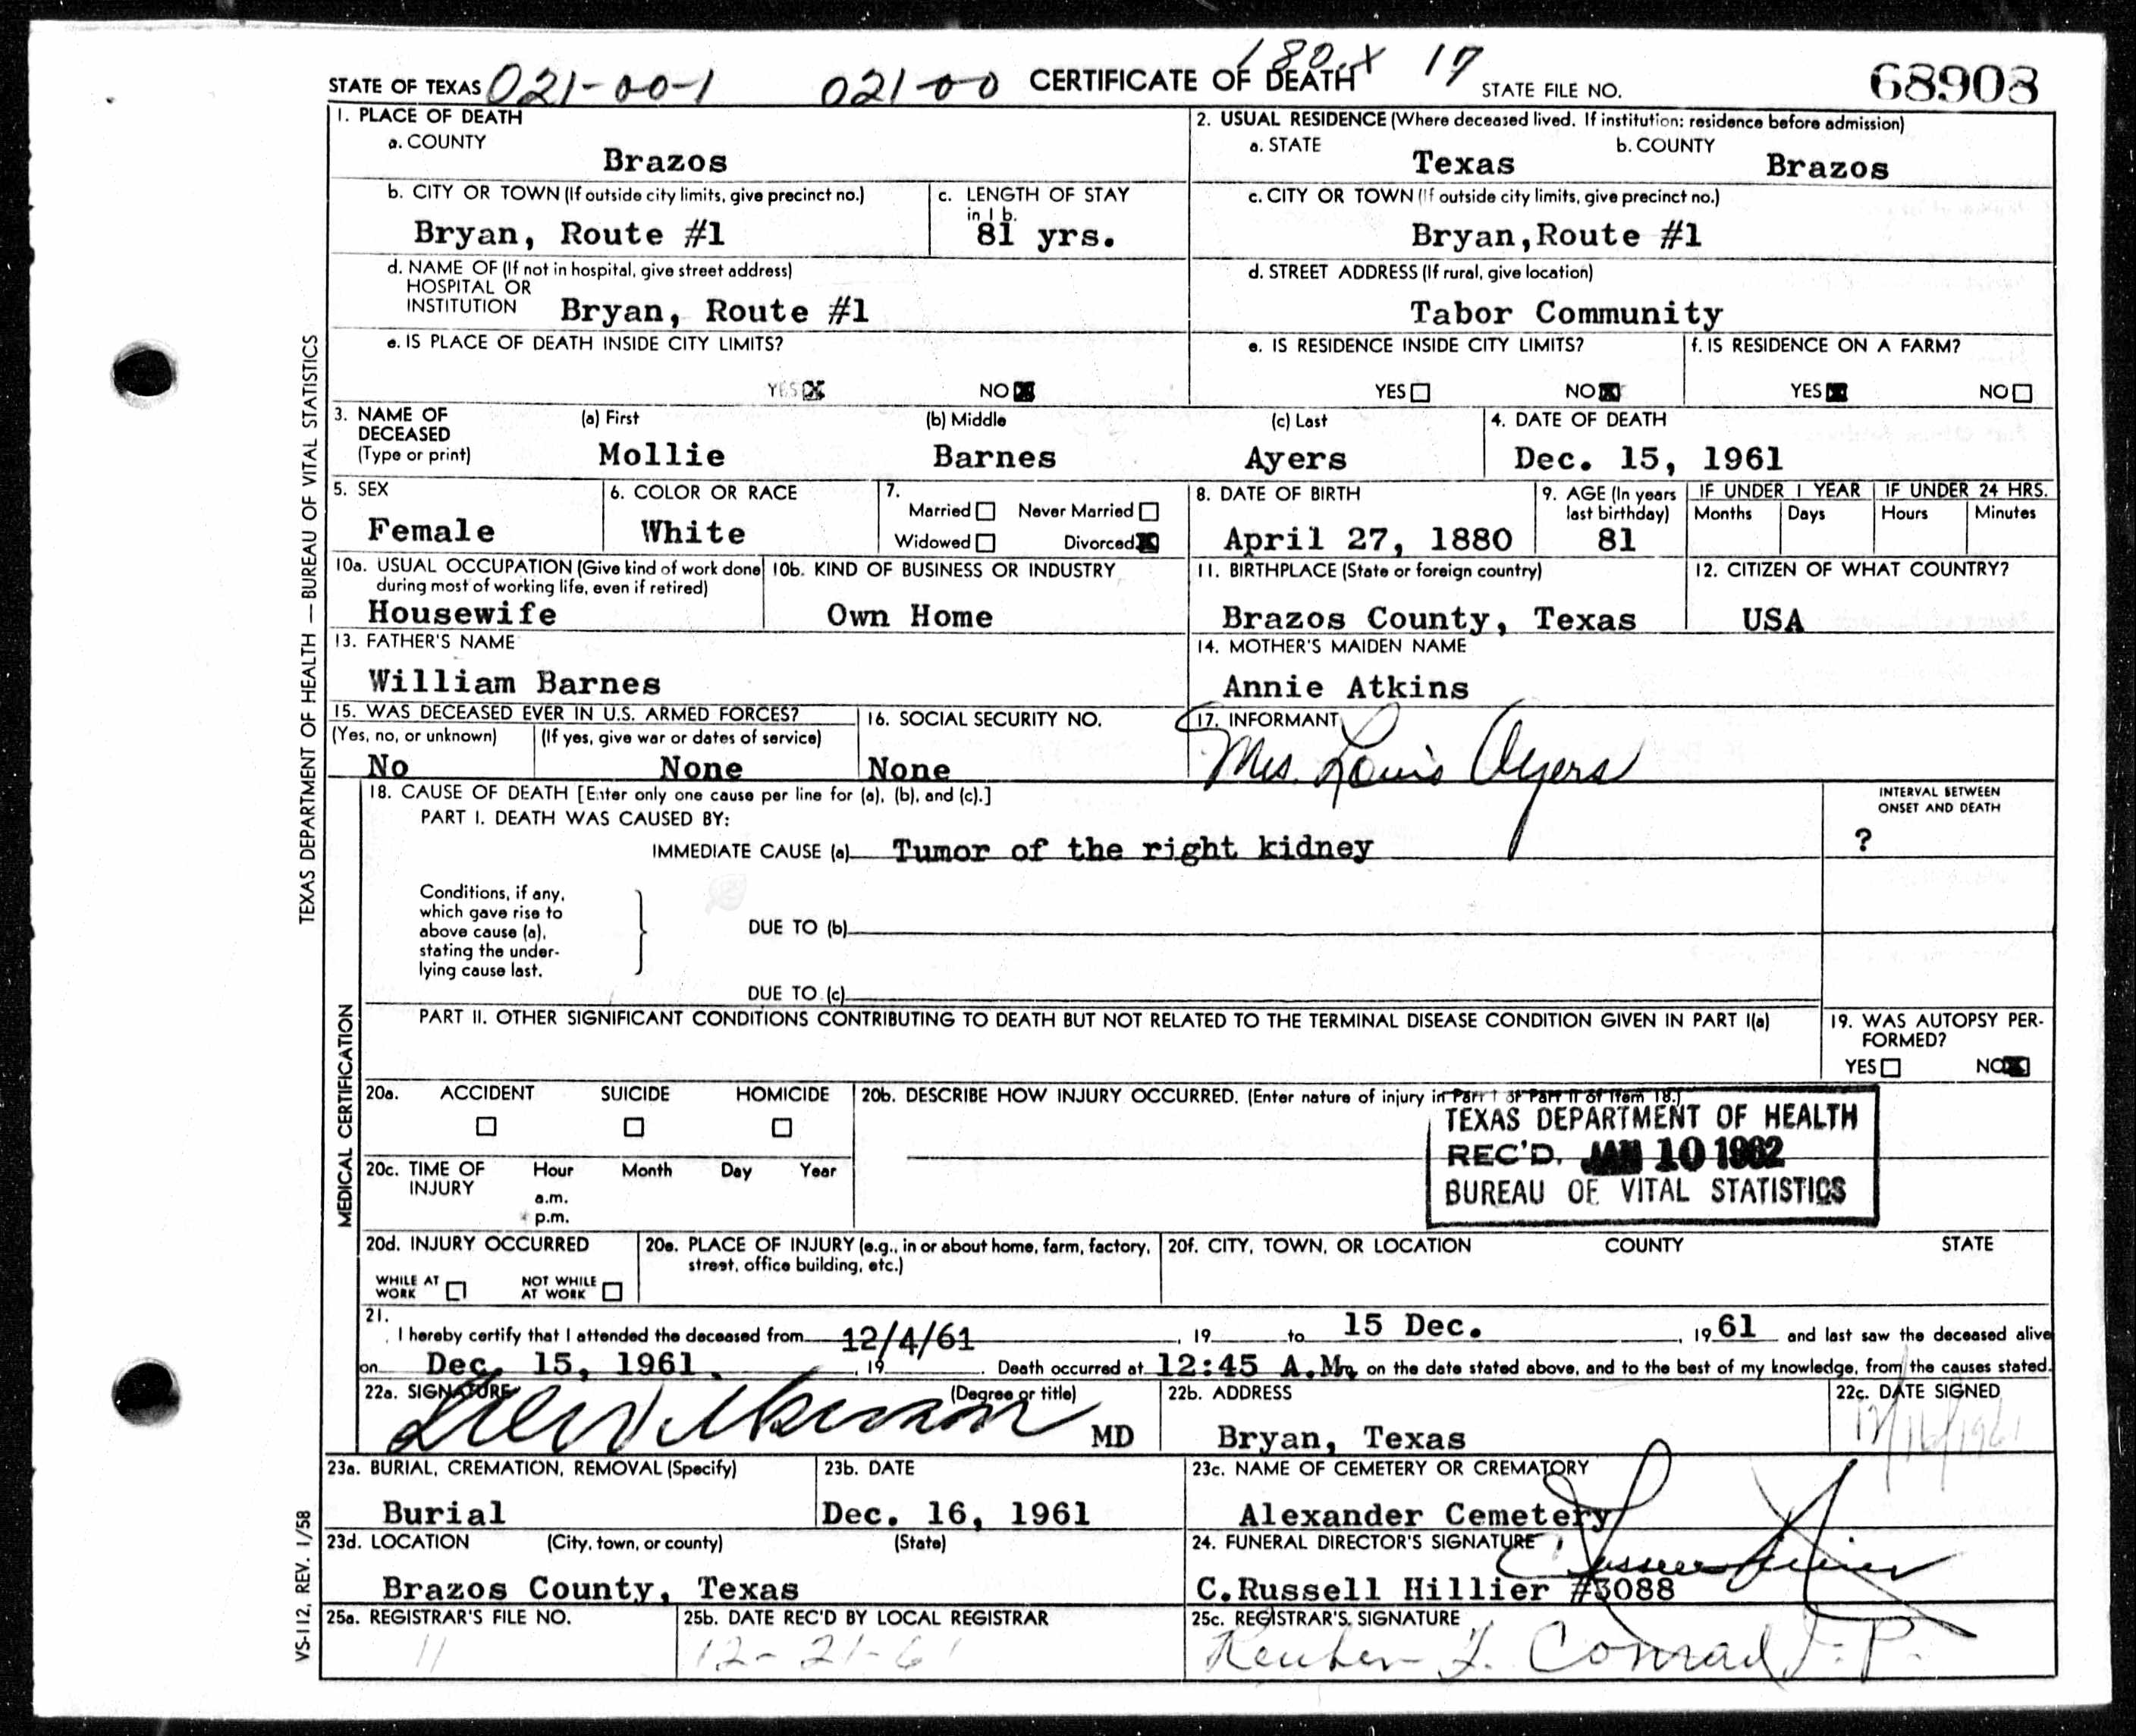 180X 17
STATE OF TEXAS 021-00-1 021-00 CERTIFICATE OF DEATH STATE FILE NO. 68908
1. PLACE OF DEATH
a. COUNTY
Brazos
2. USUAL RESIDENCE (Where deceased lived. If institution: residence before admission)
a. STATE Texas b. COUNTY Brazos
b. CITY OR TOWN (If outside city limits, give precinct no.)
Bryan, Route #1
c. LENGTH OF STAY
in 1 b.
81 yrs.
c. CITY OR TOWN (If outside city limits, give precinct no.)
Bryan,Route #1
d. NAME OF (If not in hospital, give street address)
HOSPITAL OR
INSTITUTION Bryan, Route #1
d. STREET ADDRESS (If rural, give location)
Tabor Community
e. IS PLACE OF DEATH INSIDE CITY LIMITS?
YES NO
e. IS RESIDENCE INSIDE CITY LIMITS?
YES NO
f. IS RESIDENCE ON A FARM?
YES NO
3. NAME OF
DECEASED
(Type or print)
(a) First
Mollie
(b) Middle
Barnes
(c) Last
Ayers
4. DATE OF DEATH
Dec. 15, 1961
5. SEX
Female
6. COLOR OR RACE
White
7.
Married Never Married
Widowed Divorced
8. DATE OF BIRTH
April 27, 1880
9. AGE (In years
last birthday)
81
IF UNDER 1 YEAR
Months Days
IF UNDER 24 HRS.
Hours Minutes
10a. USUAL OCCUPATION (Give kind of work done
during most of working life, even if retired)
Housewife
10b. KIND OF BUSINESS OR INDUSTRY
Own Home
11. BIRTHPLACE (State or foreign country)
Brazos County, Texas
12. CITIZEN OF WHAT COUNTRY?
USA
13. FATHER'S NAME
William Barnes
14. MOTHER'S MAIDEN NAME
Annie Atkins
15. WAS DECEASED EVER IN U.S. ARMED FORCES?
(Yes, no, or unknown) (If yes, give war or dates of service)
No None
16. SOCIAL SECURITY NO.
None
17. INFORMANT
Mrs. Louis Ayers
18. CAUSE OF DEATH [Enter only one cause per line for (a), (b), and (c).]
PART I. DEATH WAS CAUSED BY:
IMMEDIATE CAUSE (a) Tumor of the right kidney
INTERVAL BETWEEN
ONSET AND DEATH
?
Conditions, if any,
which gave rise to
above cause (a),
stating the under-
lying cause last.
DUE TO (b)
DUE TO (c)
PART II. OTHER SIGNIFICANT CONDITIONS CONTRIBUTING TO DEATH BUT NOT RELATED TO THE TERMINAL DISEASE CONDITION GIVEN IN PART I(a)
19. WAS AUTOPSY PER-
FORMED?
YES NO
20a. ACCIDENT SUICIDE HOMICIDE
20b. DESCRIBE HOW INJURY OCCURRED. (Enter nature of injury in Part I or Part II of Item 18.)
TEXAS DEPARTMENT OF HEALTH
REC'D. JAN 10 1962
BUREAU OF VITAL STATISTICS
20c. TIME OF
INJURY
Hour Month Day Year
a.m.
p.m.
20d. INJURY OCCURRED
WHILE AT
WORK
NOT WHILE
AT WORK
20e. PLACE OF INJURY (e.g., in or about home, farm, factory,
street, office building, etc.)
20f. CITY, TOWN, OR LOCATION COUNTY STATE
21.
I hereby certify that I attended the deceased from 12/4/61, 19 to 15 Dec., 1961 and last saw the deceased alive
on Dec. 15, 1961, 19. Death occurred at 12:45 A.M., on the date stated above, and to the best of my knowledge, from the causes stated.
22a. SIGNATURE (Degree or title)
MD
22b. ADDRESS
Bryan, Texas
22c. DATE SIGNED
12/16/1961
23a. BURIAL, CREMATION, REMOVAL (Specify)
Burial
23b. DATE
Dec. 16, 1961
23c. NAME OF CEMETERY OR CREMATORY
Alexander Cemetery
23d. LOCATION (City, town, or county) (State)
Brazos County, Texas
24. FUNERAL DIRECTOR'S SIGNATURE
C.Russell Hillier #3088
25a. REGISTRAR'S FILE NO.
11
25b. DATE REC'D BY LOCAL REGISTRAR
12-21-61
25c. REGISTRAR'S SIGNATURE
Reuben F. Conrad J.P.
TEXAS DEPARTMENT OF HEALTH — BUREAU OF VITAL STATISTICS
MEDICAL CERTIFICATION
VS-112, REV. 1/58